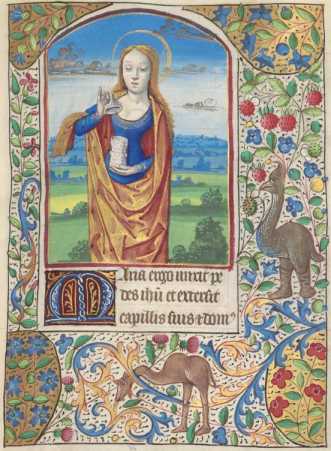 Maria ergo unxit pe
des ihu et extersit
capillis suis et domꝰ